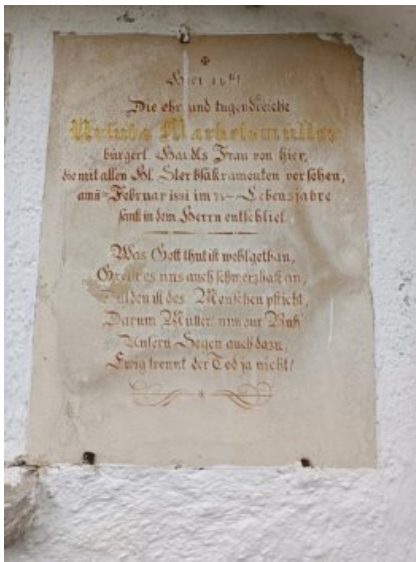 Hier ruht
Die ehr und tugendreiche
Markelsmüller
bürgerl. Frau von hier,
die mit allen hl. Sterbsakramenten versehen,
am Februar im Lebensjahre
sanft in dem Herrn entschlief.
Was Gott thut ist wohlgethan,
Greift es uns auch schmerzhaft an,
Dulden ist des Menschen pflicht,
Darum Mutter! nun zur Ruh'
Unsern Segen auch dazu,
Ewig trennt der Tod ja nicht!